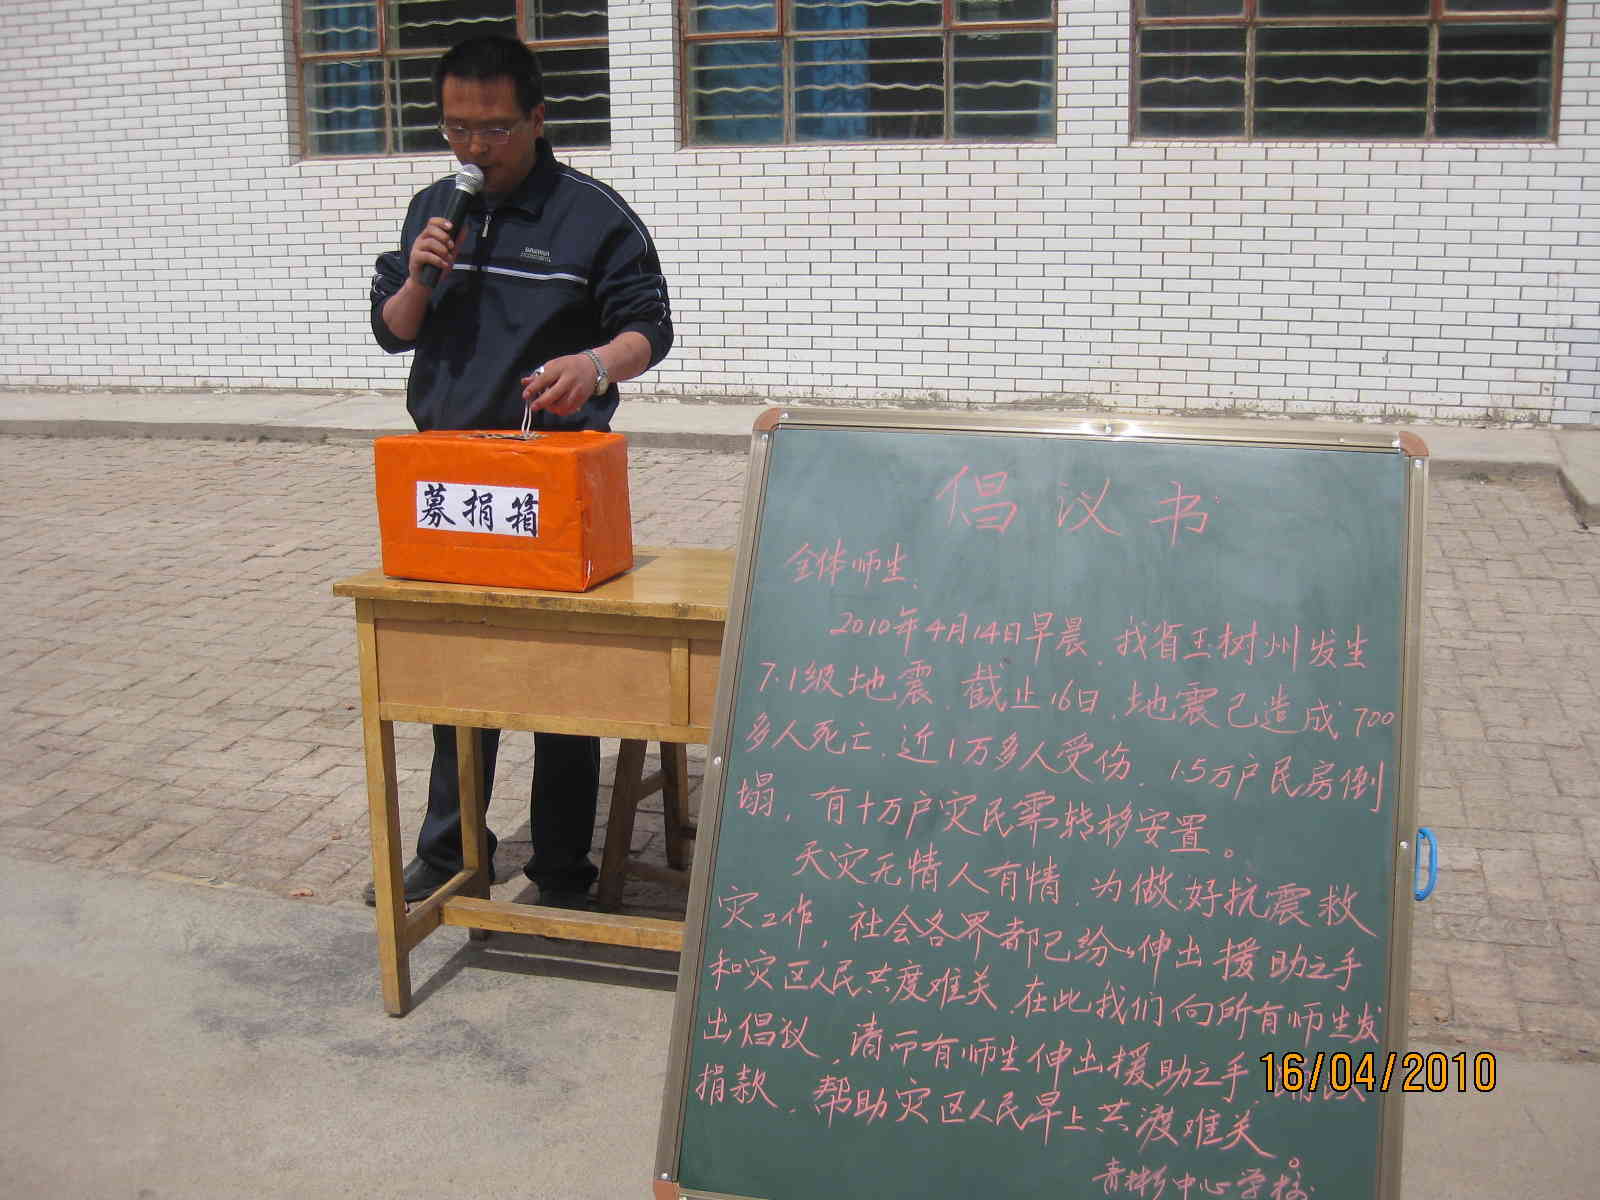 募捐箱
倡议书
全体师生:
2010年4月14日早晨,我省玉树州发生
7.1级地震,截止16日,地震已造成700
多人死亡,近1万多人受伤,1.5万户民房倒
塌,有十万户灾民需转移安置。
天灾无情人有情,为做好抗震救
灾工作,社会各界都已纷纷伸出援助之手
和灾区人民共度难关,在此我们向所有师生发
出倡议,请所有师生伸出援助之手,踊跃
捐款,帮助灾区人民早上共渡难关。
青林乡中心学校
16/04/2010